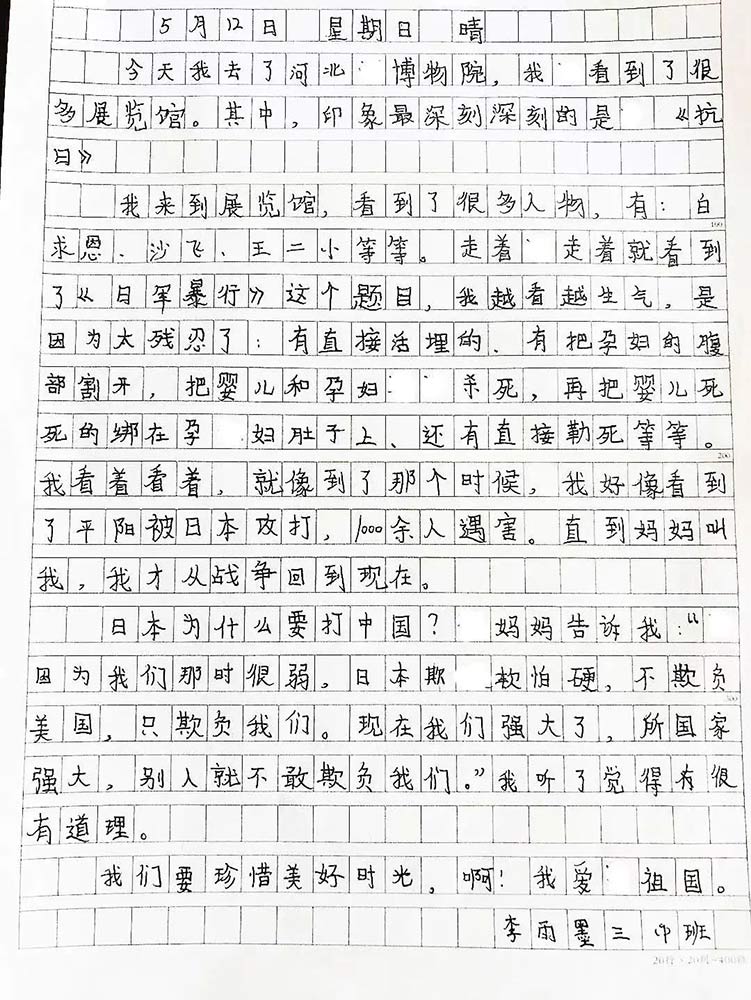 5月12日 星期日 晴
今天我去了河北博物院，我看到了很
多展览馆。其中，印象最深刻深刻的是《抗
日》
我来到展览馆，看到了很多人物，有：白
求恩、沙飞、王二小等等。走着走着就看到
了《日军暴行》这个题目，我越看越生气，是
因为太残忍了：有直接活埋的、有把孕妇的腹
部割开，把婴儿和孕妇杀死，再把婴儿死
死的绑在孕妇肚子上、还有直接勒死等等。
我看着看着，就像到了那个时候，我好像看到
了平阳被日本攻打，1000余人遇害。直到妈妈叫
我，我才从战争回到现在。
日本为什么要打中国？妈妈告诉我：“
因为我们那时很弱，日本欺软怕硬，不欺负
美国，只欺负我们。现在我们强大了，所国家
强大，别人就不敢欺负我们。”我听了觉得有很
有道理。
我们要珍惜美好时光，啊！我爱祖国。
李雨墨三（1）班